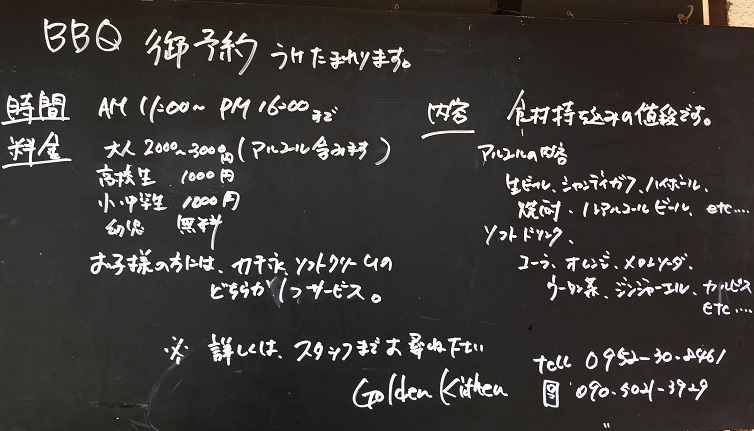 BBQ 御予約 うけたまわります。
時間 AM 11:00~ PM 16:00まで
料金 大人 2000~3000円(アルコール含みます)
高校生 1000円
小・中学生 1000円
幼児 無料
お子様の方には、カキ氷、ソフトクリームの
どちらか1つサービス。
内容 食材持ち込みの値段です。
アルコールの内容
生ビール、シャンディガフ、ハイボール、
焼酎、ノンアルコールビール、etc...
ソフトドリンク、
コーラ、オレンジ、メロンソーダ、
ウーロン茶、ジンジャーエール、カルピス
etc....
※ 詳しくは、スタッフまでお尋ね下さい
Golden Kitchen
tell 0952-30-2461
090-5021-3929